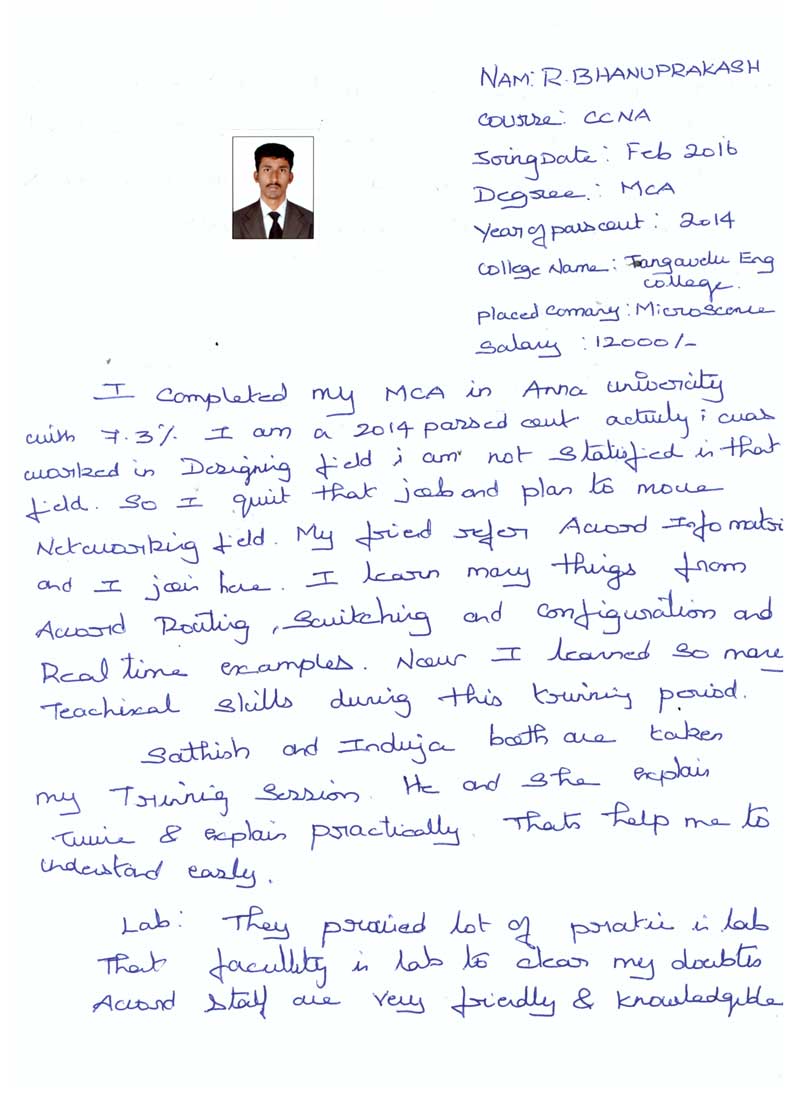 NAM: R. BHANUPRAKASH
course: CCNA
Joing Date: Feb 2016
Degree.: MCA
Year of passcout: 2014
College Name: Tangavelu Eng
college.
placed comany: Microscence
Salary : 12000/-
I completed my MCA in Anna univercity
with 7.3% I am a 2014 passed out actuly i was
worked in Designing field i am not Statisfied in that
field. So I quit that job and plan to move
Networking field. My fried refer Accord Infomatri
and I join here. I learn many things from
Accord Routing, Switching and configuration and
Real time examples. Now I learned so more
Teachixal skills during this trwinig period.
Sathish and Induja booth are taken
my Trwinig Session. He and She explain
Twice & explain practically. Thats help me to
understand easly.
Lab: They provied lot of pratic in lab
That facullity in lab to clear my doubts
Accord Staff are very friedly & knowledgible